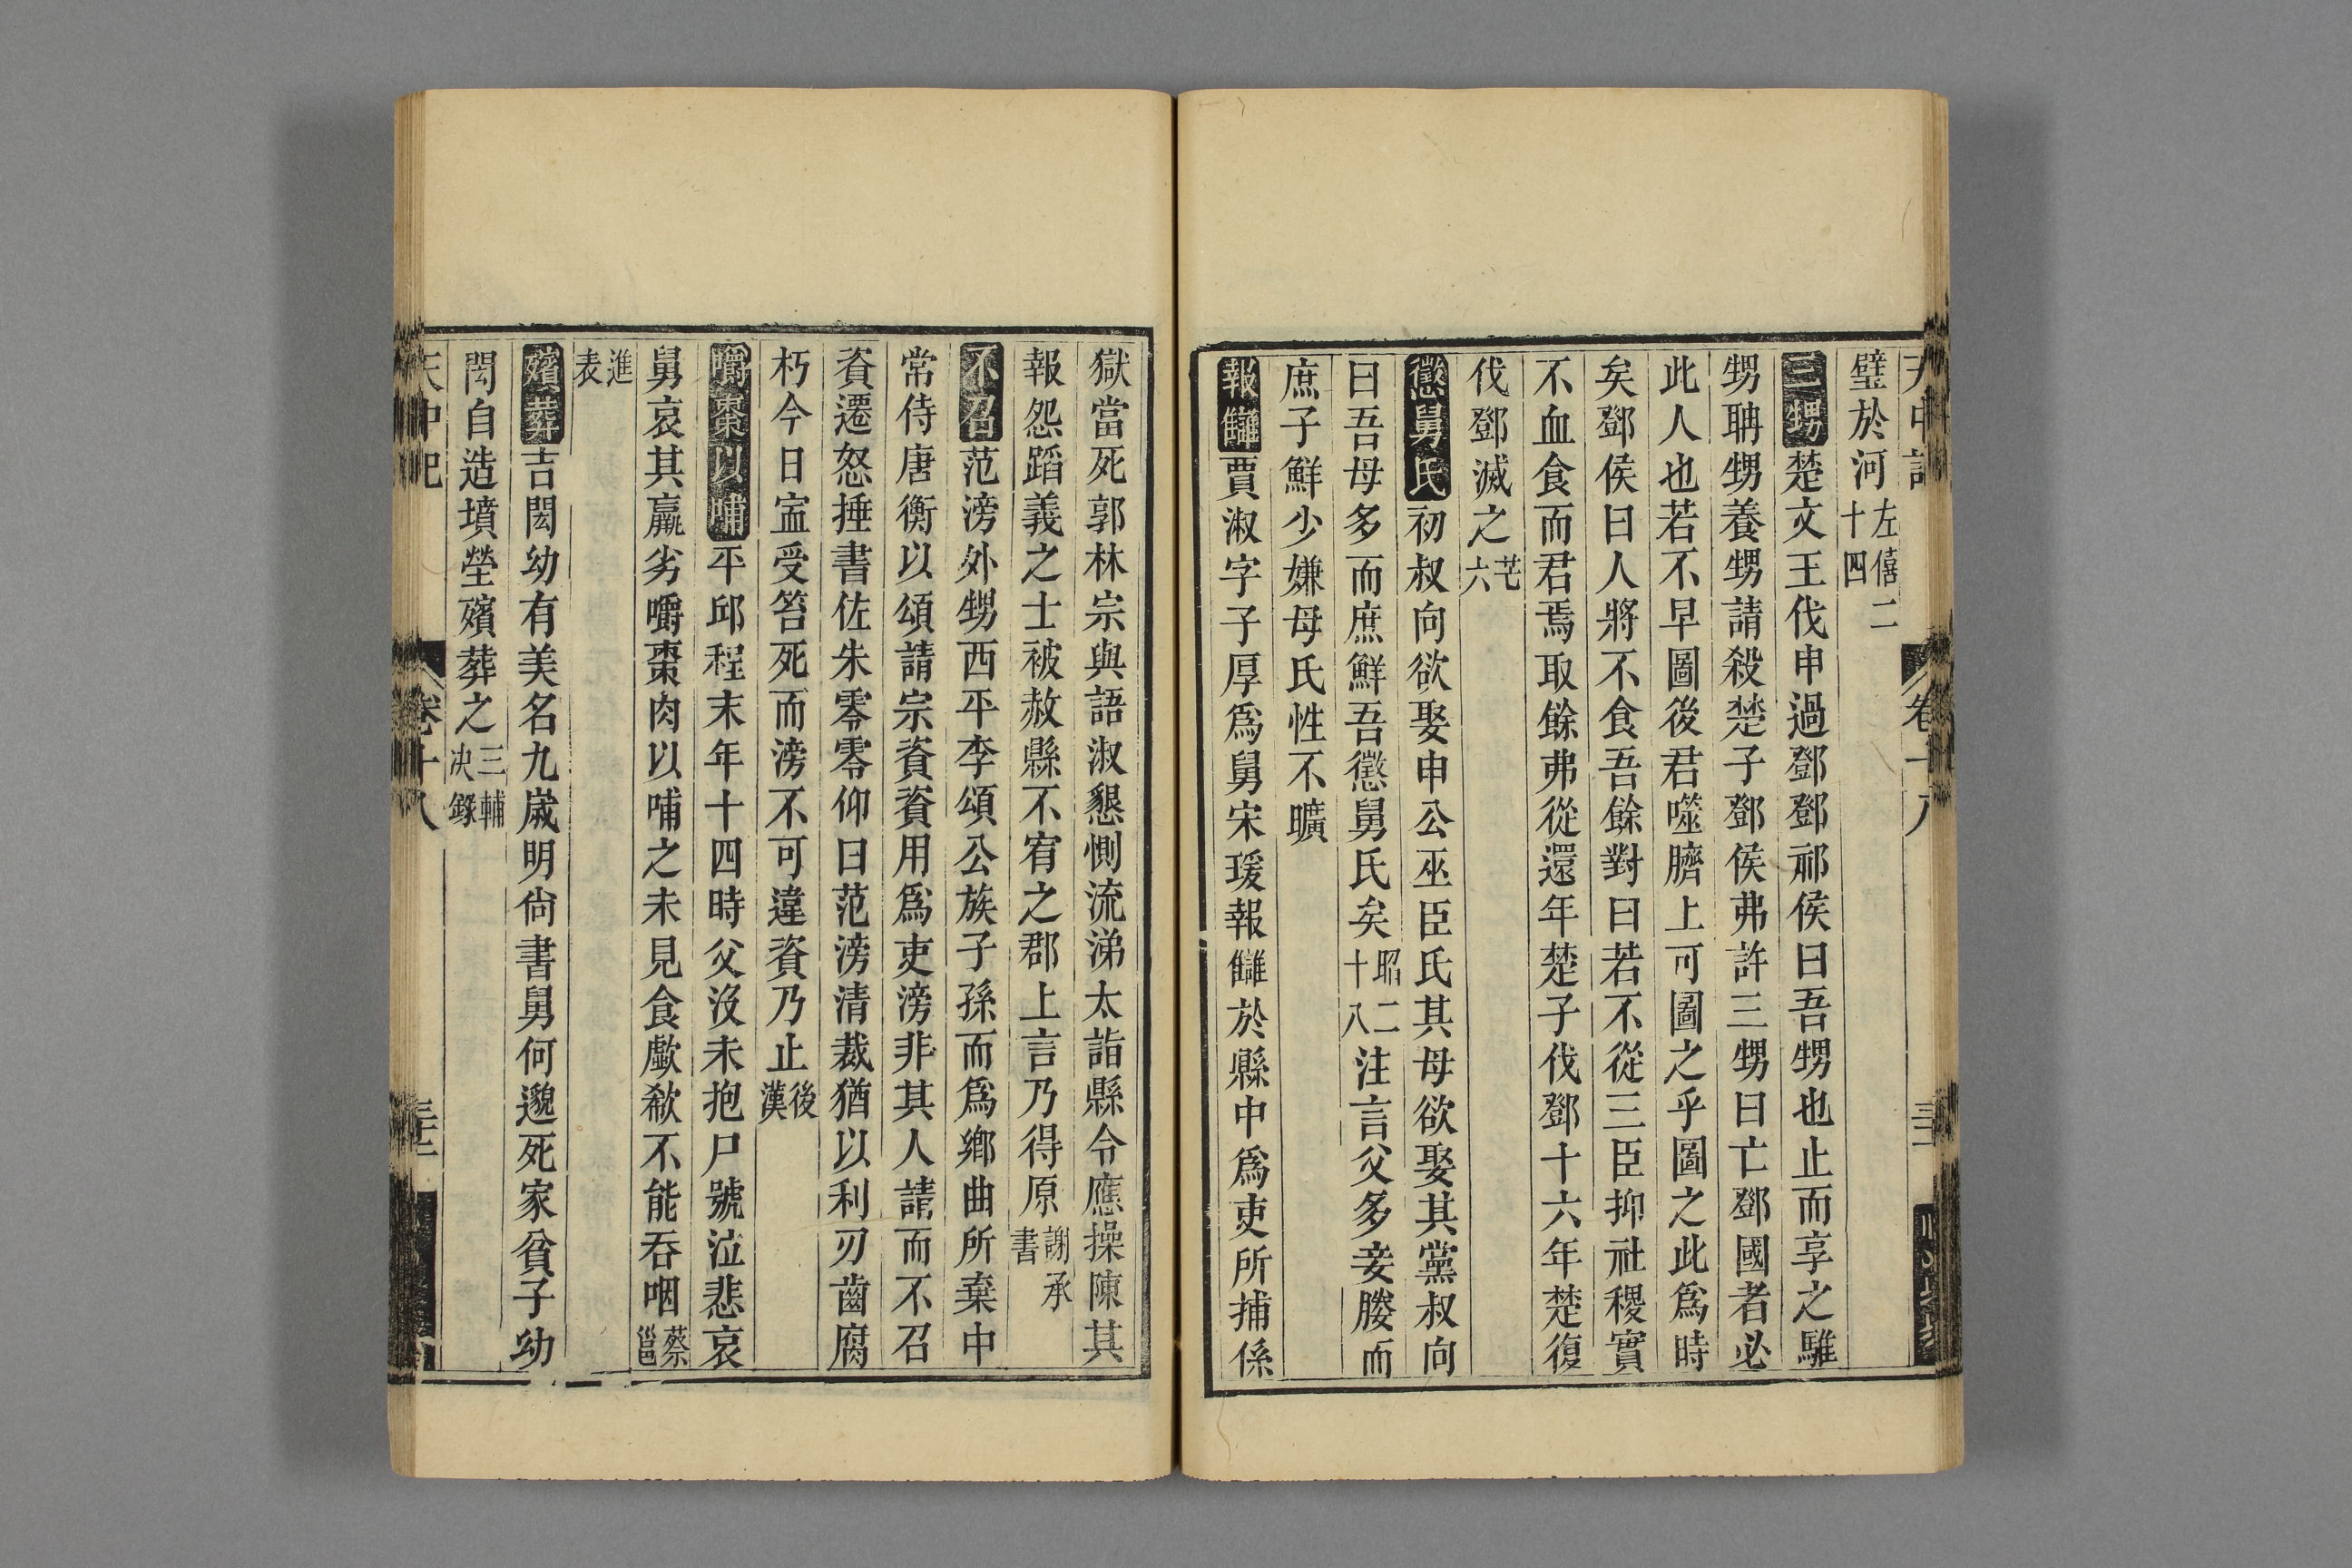 璧於河左僖二十四
三甥楚文王伐申過鄧鄧祁侯曰吾甥也止而享之騅
甥聃甥養甥請殺楚子鄧侯弗許三甥曰亡鄧國者必
此人也若不早圖後君噬臍上可圖之乎圖之此爲時
矣鄧侯曰人將不食吾餘對曰若不從三臣抑社稷實
不血食而君焉取餘弗從還年楚子伐鄧十六年楚復
伐鄧滅之莊六
懲舅氏初叔向欲娶申公巫臣氏其母欲娶其黨叔向
曰吾母多而庶鮮吾懲舅氏矣昭二十八注言父多妾媵而
庶子鮮少嫌母氏性不曠
報讎賈淑字子厚爲舅宋瑗報讎於縣中爲吏所捕係
獄當死郭林宗與語淑懇惻流涕太詣縣令應操陳其
報怨蹈義之士被赦縣不宥之郡上言乃得原謝承書
不召范滂外甥西平李頌公族子孫而爲鄉曲所棄中
常侍唐衡以頌請宗資資用爲吏滂非其人請而不召
資遷怒捶書佐朱零零仰曰范滂清裁猶以利刃齒腐
朽今日寍受笞死而滂不可違資乃止後漢
嚼棗以哺平邱程末年十四時父沒未抱尸號泣悲哀
舅哀其羸劣嚼棗肉以哺之未見食歔欷不能吞咽蔡邕
進表
殯葬吉閎幼有美名九歲明尙書舅何邈死家貧子幼
閎自造墳塋殯葬之三輔决錄
天中記
卷十八